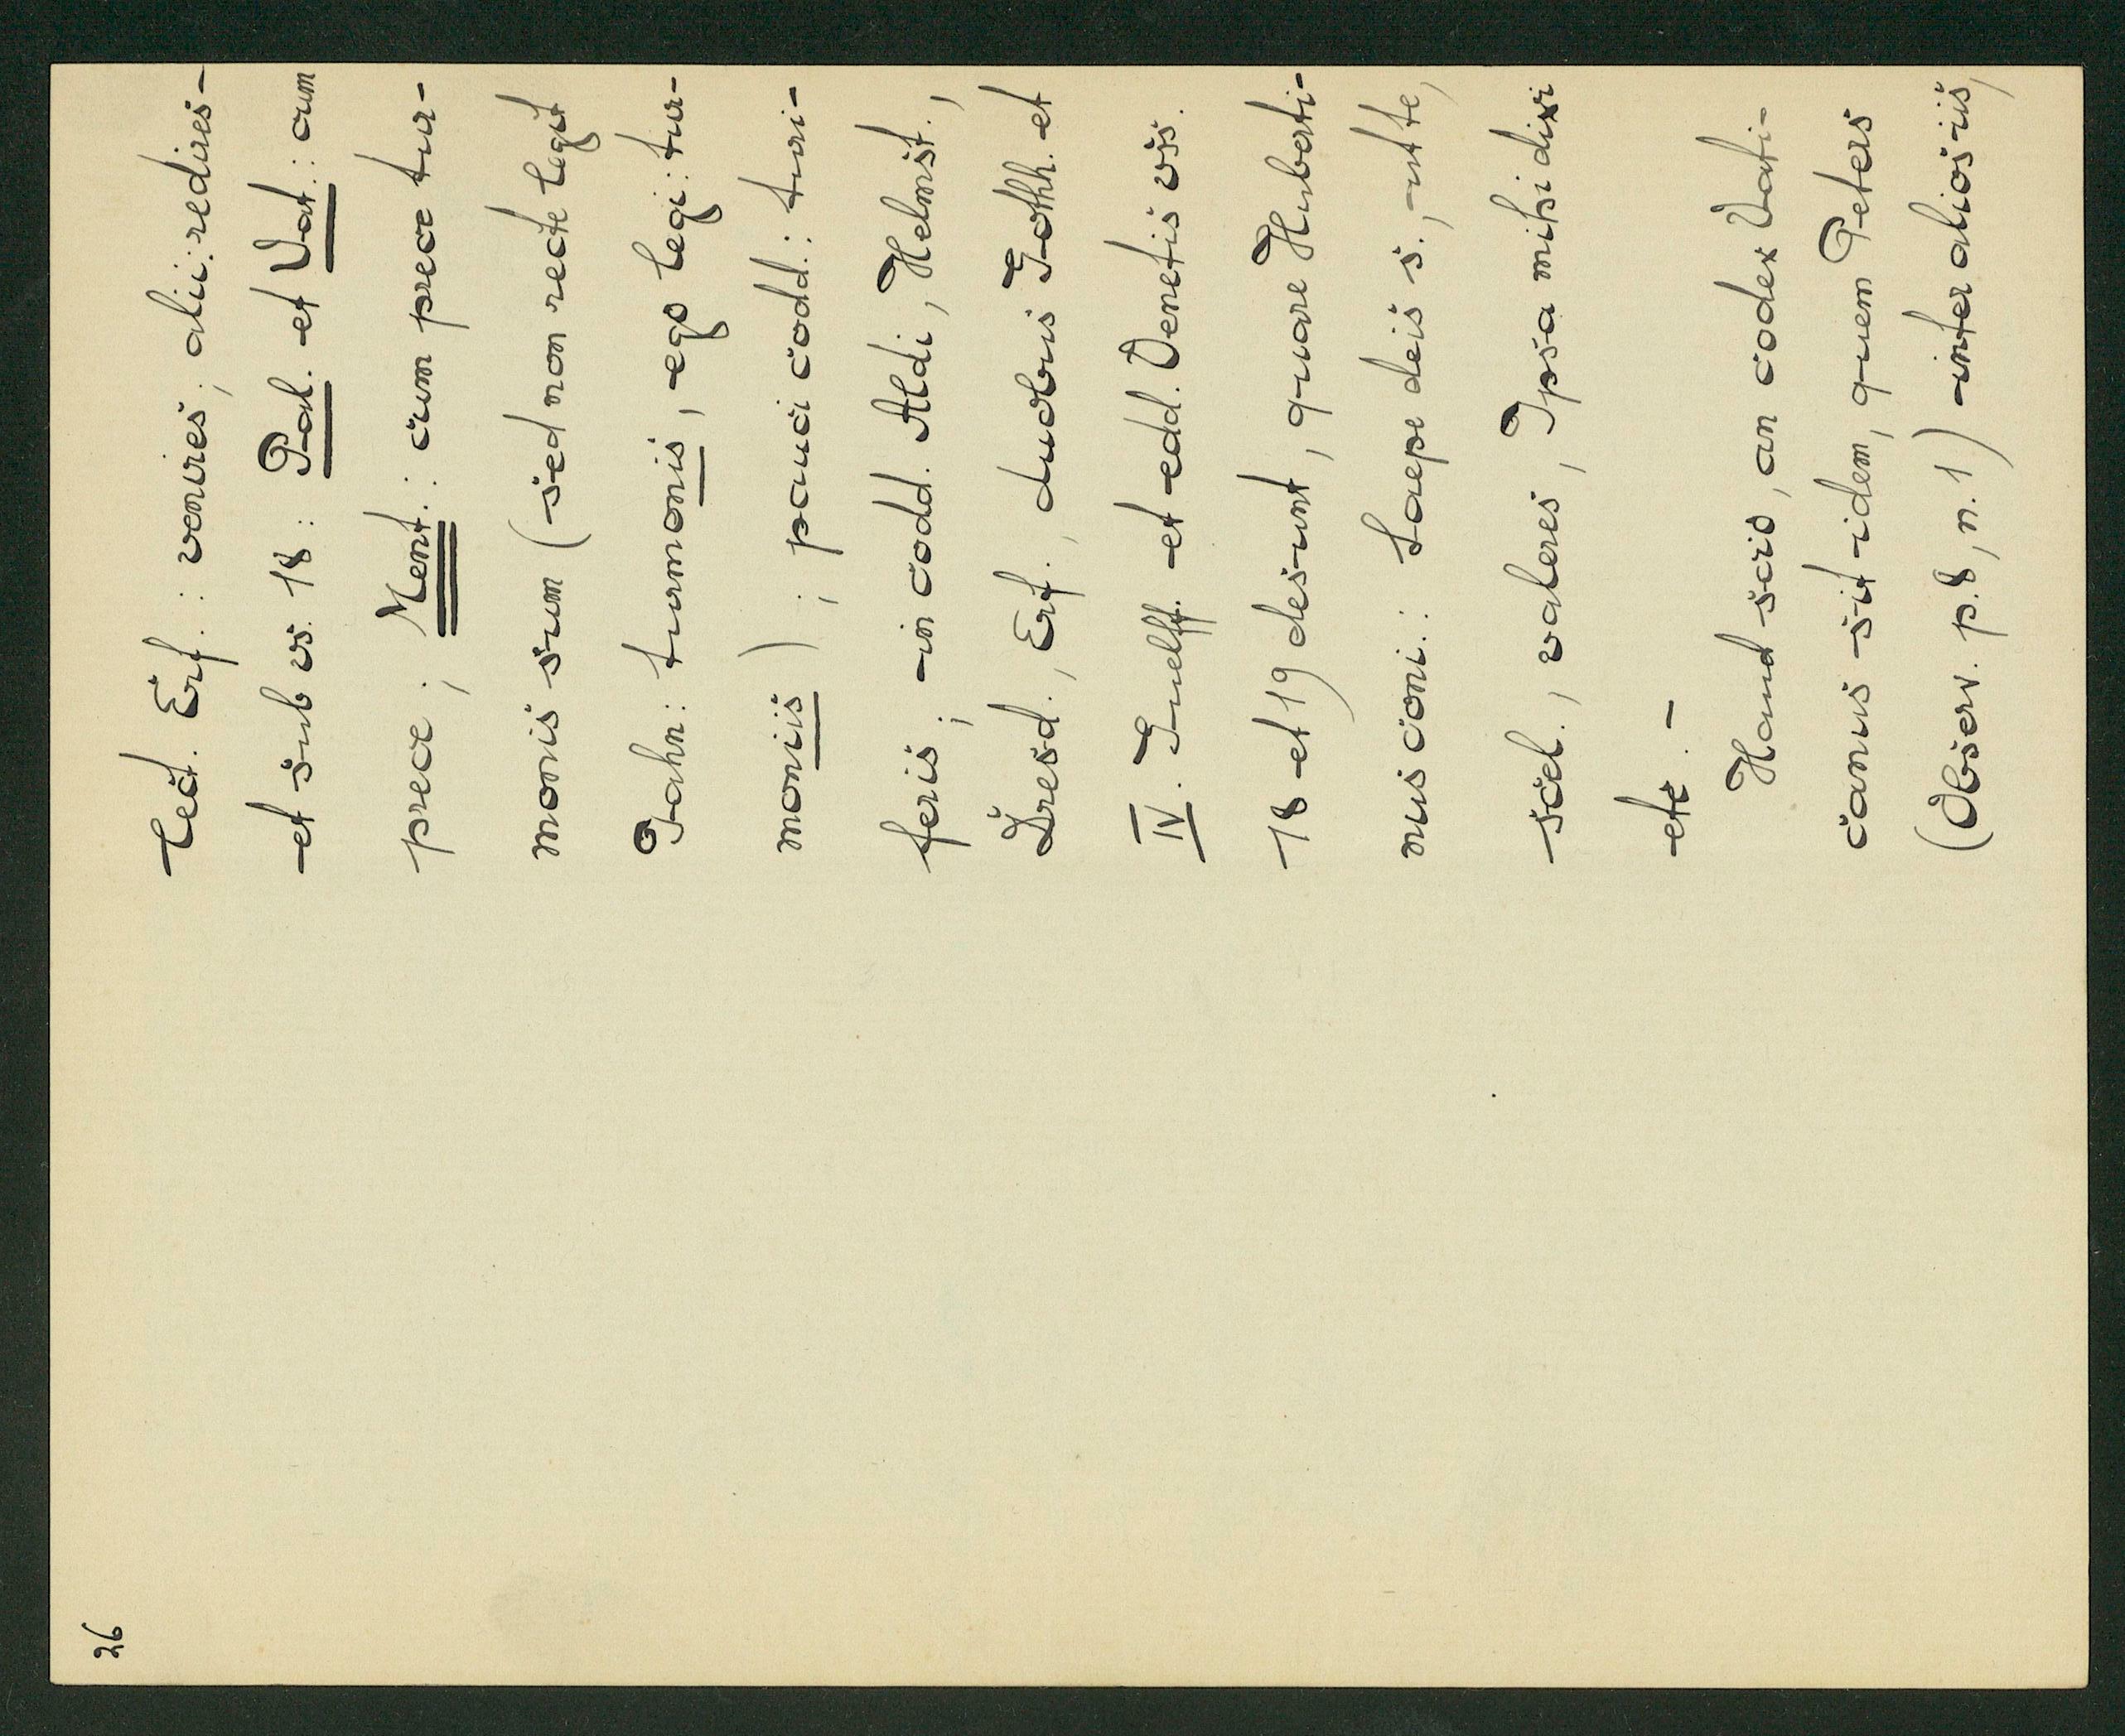 26
lect. Erf.: venires; alii: redires-
et sub vs. 18: Pal. et Vat.: cum
prece; Ment.: cum prece tur-
monis sum (sed non recte legit
Jahn: turmonis, ego legi: tur-
moniis); pauci codd.: turi-
feris; in codd. Aldi, Helmst.,
Dresd., Erf., duobus Gothh. et
IV. Guelff. et edd. Venetis vss.
18 et 19 desunt, quare Huberti-
nus coni.: Saepe deis s., ut te,
scel., valeres, Ipsa mihi dixi
etc. -
Haud scio, an codex Vati-
canus sit idem, quem Peters
(Observ. p. 8, n. 1) inter alios iis,